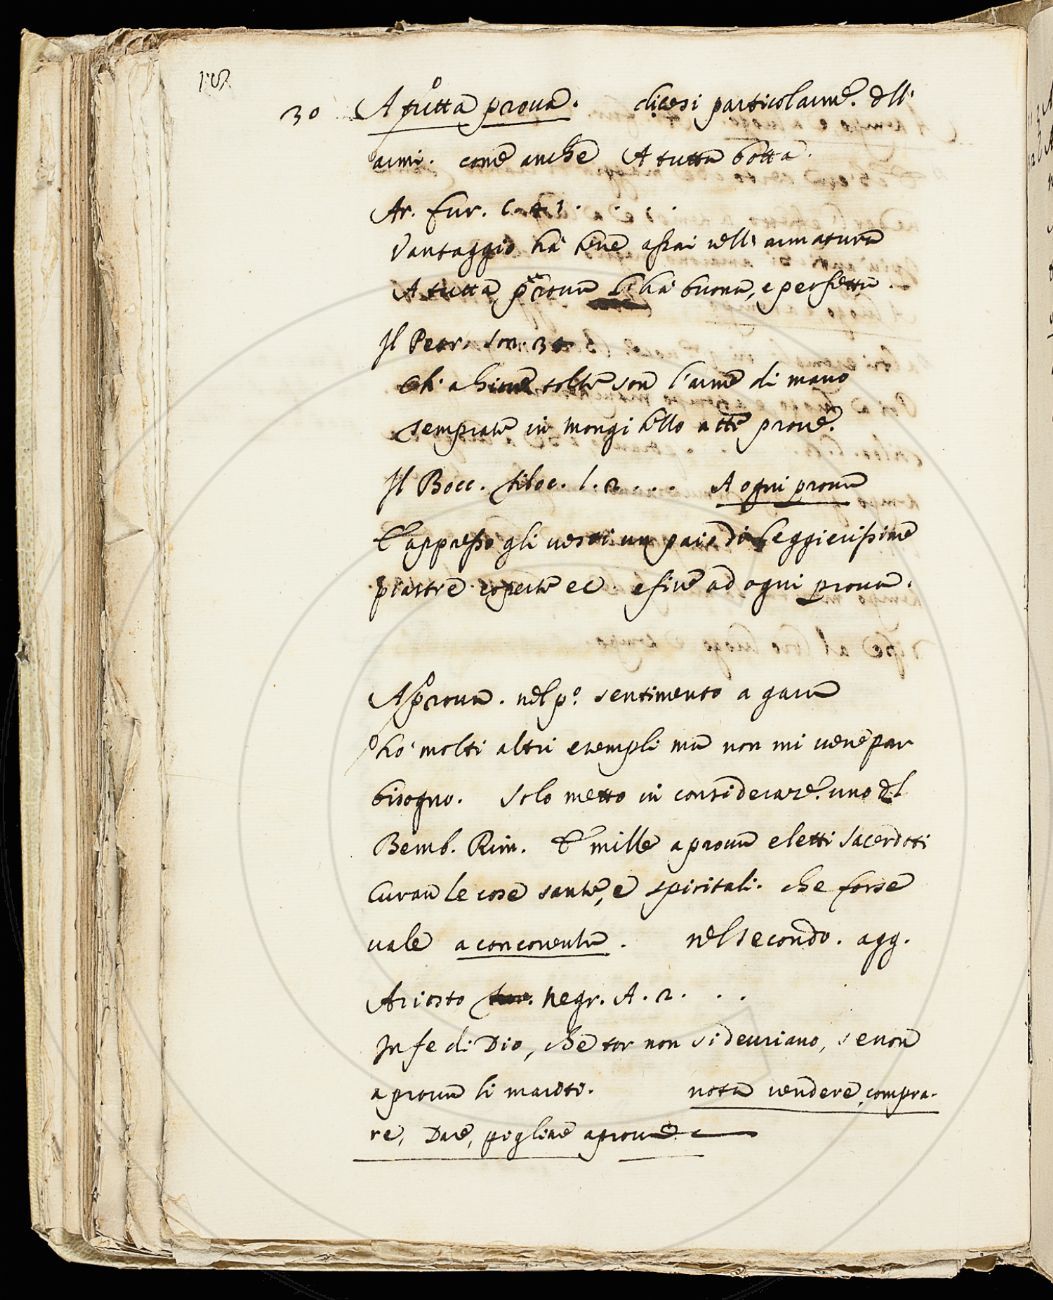 30 A tutta prova. dicesi particolarmẽ. dell'
armi. come anche A tutta botta.
Ar. fur. c.
Vantaggio ha bene assai nell'armatura
A tutta prova l'ha buona, e perfetta.
Il Petr. son.
tolte son l'arme di mano
temprate in Mongibello a tte prove.
Il Bocc. filoc. l. 2. . . A ogni prova
E appresso gli vestì un paio di leggierissime
piastre coperte ec e fine ad ogni prova.
A prova. nel pº. sentimento a gara
ho molti altri exempli ma non mi vene par
bisogno. Solo metto in considerazẽ. uno del
Bemb. Rim. E mille a prova eletti sacerdoti
Curan le cose sante, e spiritali. che forse
vale a concorrenza. nel secondo. agg.
Ariosto Negr. A. 2. . .
In fe di Dio, che tor non si devriano, se non
a prova li mariti. nota vendere, compra-
re, Dare, pigliare a prova